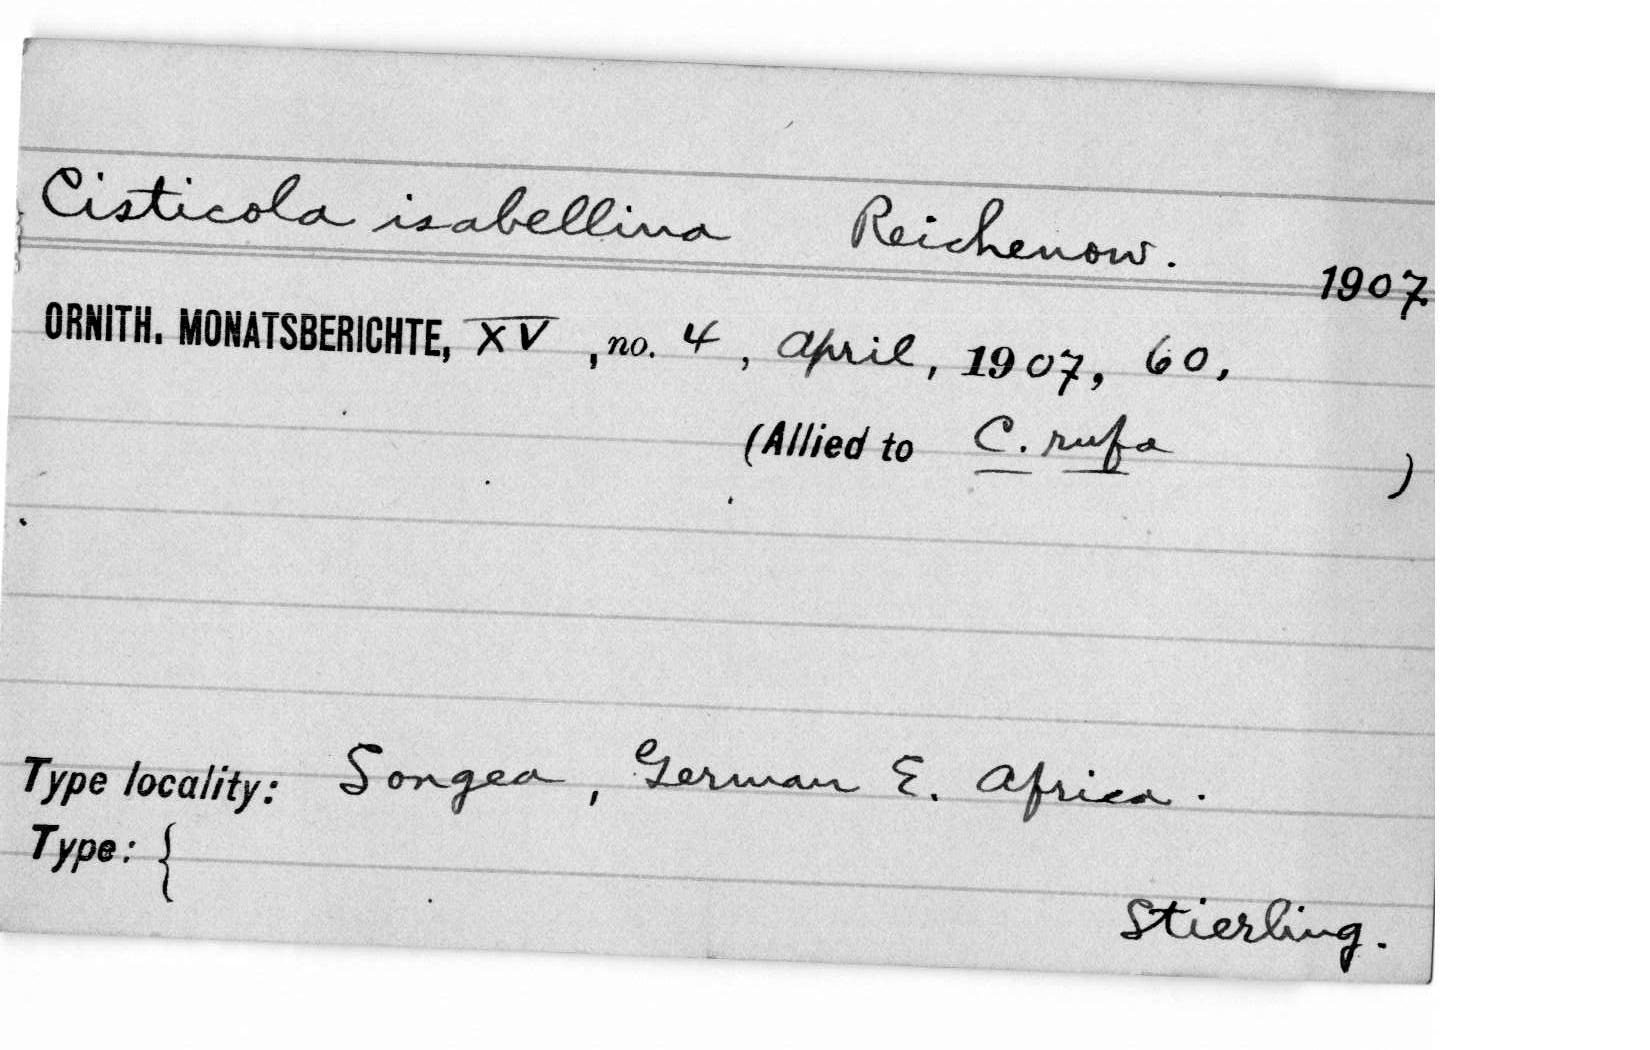 Cisticola isabellina Reichenow. 1907
ORNITH. MONATSBERICHTE, XV, no. 4, April, 1907, 60.
(Allied to C. rufa )
Type locality: Songea, German E. Africa.
Type: {
Stierling.